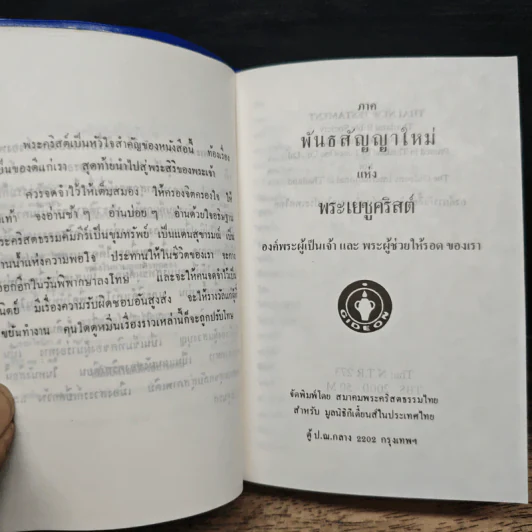 พระคริสต์เป็นหัวใจสำคัญของหนังสือนี้
สุดท้ายนำไปสู่พระสิริของพระเจ้า
ควรจดจำไว้ให้เต็มสมอง ให้ครองจิตครองใจ ให้
จงอ่านช้า ๆ อ่านบ่อย ๆ อ่านด้วยใจอธิษฐาน
พระคริสตธรรมคัมภีร์เป็นขุมทรัพย์ เป็นแดนสุขารมณ์
แห่งความพอใจ ประทานให้ในชีวิตของเรา
อีกในวันพิพากษาลงโทษ และจะให้คนจดจำไว้เป็น
มีเรื่องความรับผิดชอบอันสูงส่ง จะให้รางวัลแก่ผู้
ขยันทำงาน
ภาค
พันธสัญญาใหม่
แห่ง
พระเยซูคริสต์
องค์พระผู้เป็นเจ้า และ พระผู้ช่วยให้รอด ของเรา
GIDEON
จัดพิมพ์โดย สมาคมพระคริสตธรรมไทย
สำหรับ มูลนิธิกิเดี้ยนส์ในประเทศไทย
ตู้ ป.ณ.กลาง 2202 กรุงเทพฯ